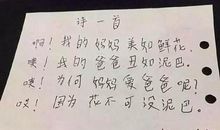 诗一首
啊！我的妈妈美如鲜花。
噢！我的爸爸丑如泥巴。
咦！为何妈妈爱爸爸呢？
哎！因为花不可没泥巴。